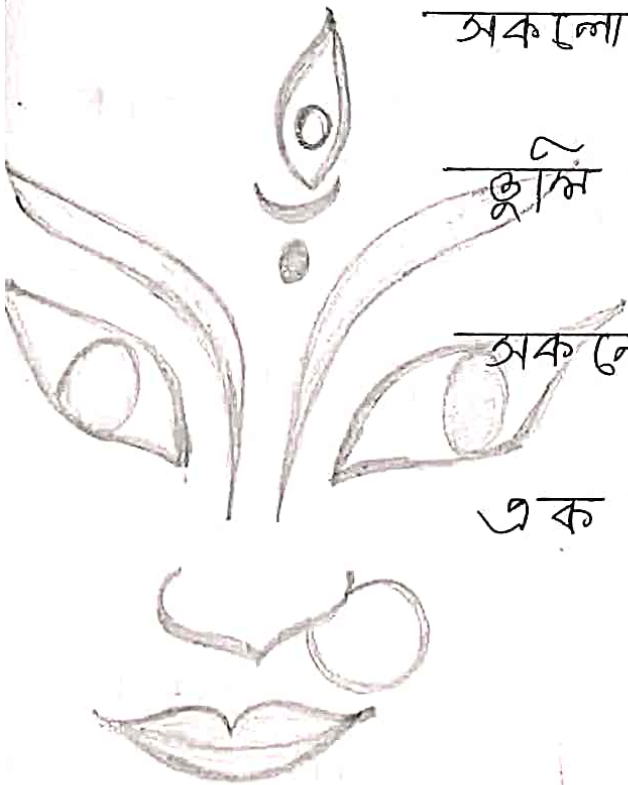 সকলো
ভুলি
সকলে
এক